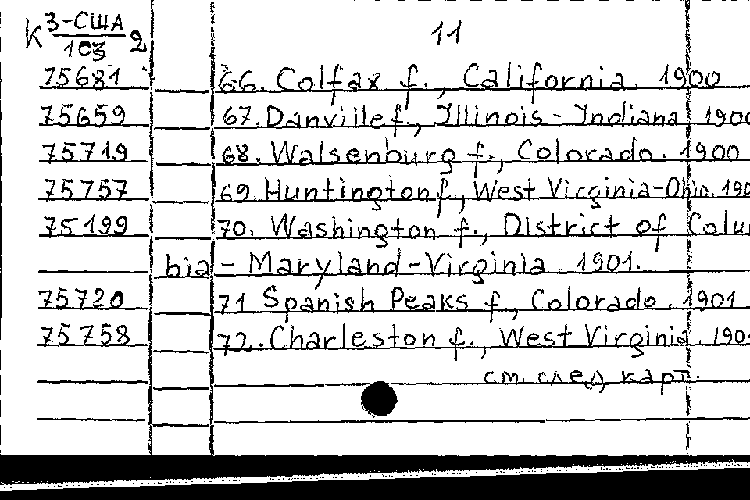 К 3-США 11
103 2
75681 66. Colfax f., California. 1900
75659 67. Danville f., Illinois - Indiana 1900
75719 68. Walsenburg f., Colorado. 1900
75757 69. Huntington f., West Virginia-Ohio. 190
75199 70. Washington f., District of Colum
bia - Maryland - Virginia. 1901.
75720 71 Spanish Peaks f., Colorado. 1901
75758 72. Charleston f., West Virginia. 190
см. след карт.